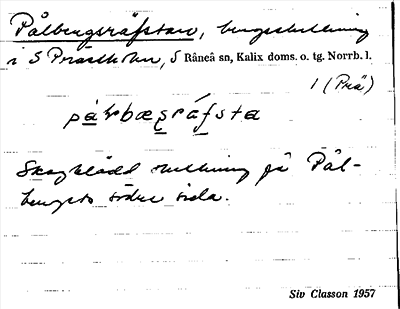 Pålbergsräfstan, bergssluttning
i S Prästholm, S Råneå sn, Kalix doms. o. tg. Norrb. l.
1 (Prä)
Skogklädd sluttning på Pål-
bergets södra sida.
Siv Classon 1957